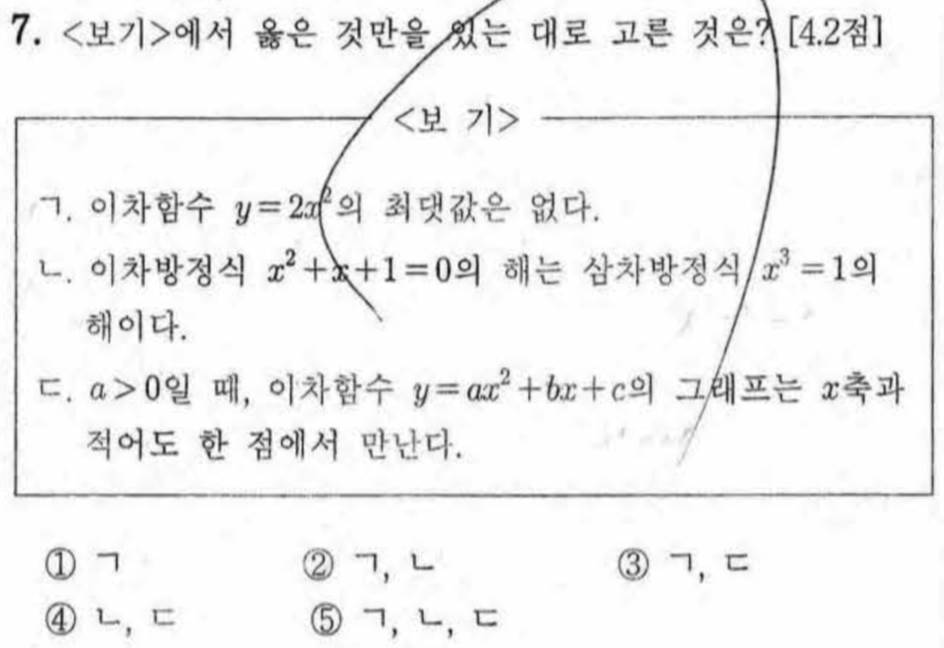 7. <보기>에서 옳은 것만을 있는 대로 고른 것은? [4.2점]
<보 기>
ㄱ. 이차함수 y=2x²의 최댓값은 없다.
ㄴ. 이차방정식 x²+x+1=0의 해는 삼차방정식 x³=1의
해이다.
ㄷ. a>0일 때, 이차함수 y=ax²+bx+c의 그래프는 x축과
적어도 한 점에서 만난다.
① ㄱ ② ㄱ, ㄴ ③ ㄱ, ㄷ
④ ㄴ, ㄷ ⑤ ㄱ, ㄴ, ㄷ